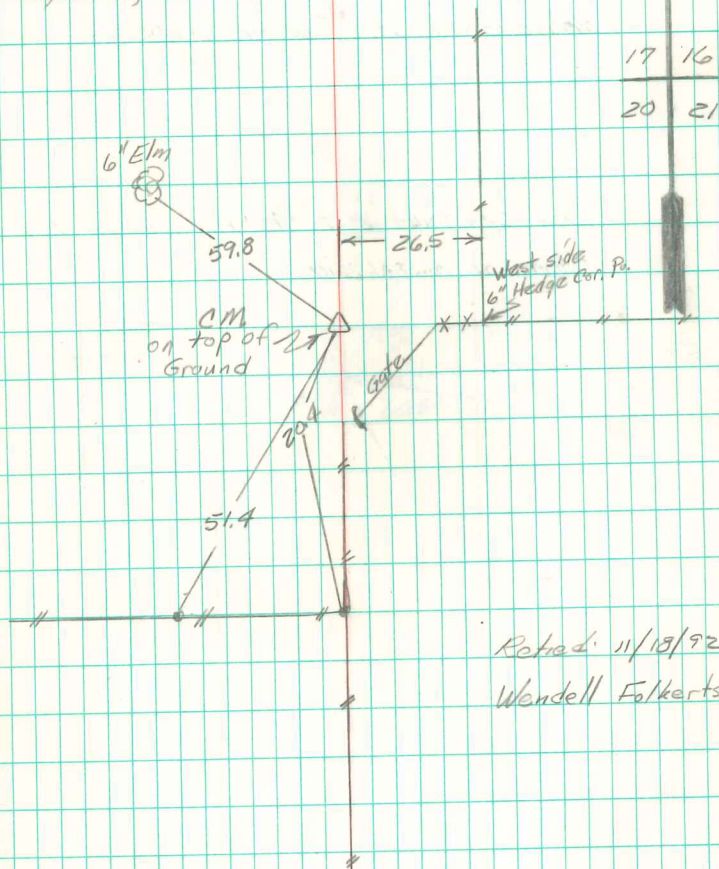 17 16
20 21
6" Elm
59.8
26.5
West side
6" Hedge Cor. Po.
CM
on top of
Ground
Gate
20.4
51.4
Retied. 11/18/92
Wendell Folkerts